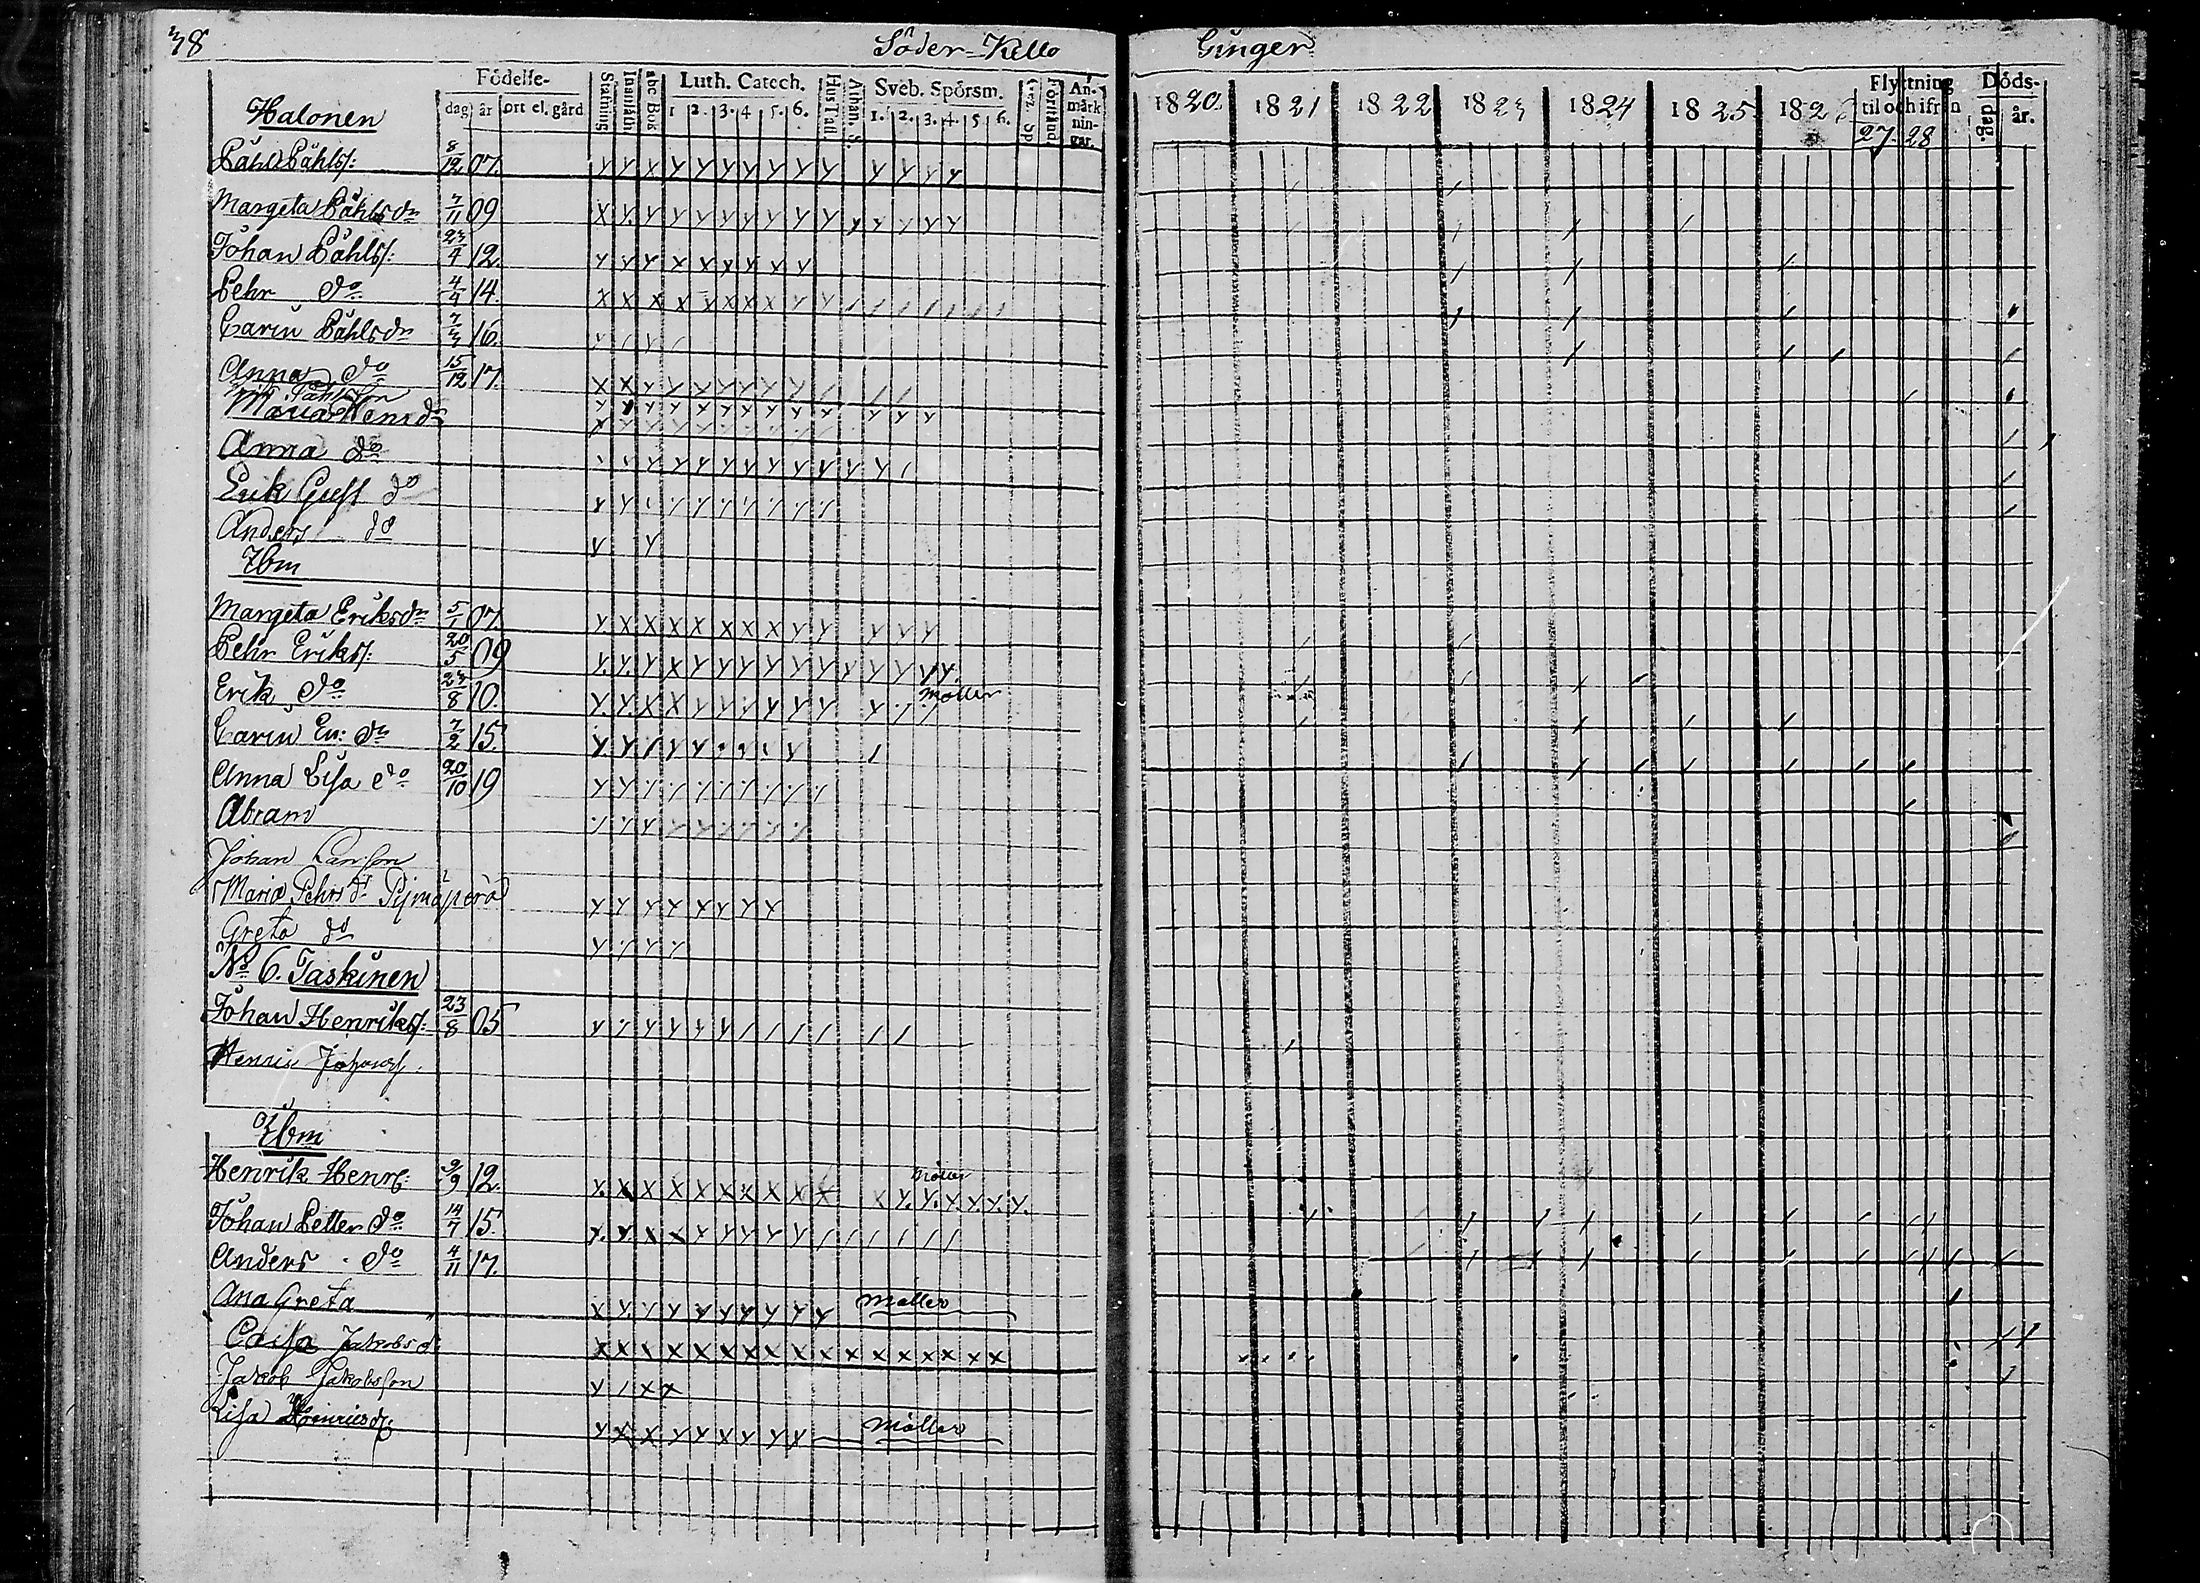 38 Söder-Kello Ginger
Födelse- Luth. Catech. Sveb. Spörsm. An-märk-nin-gar. Flyttning til och ifrån Döds-
dag år ort el. gård Stafning Innanläsn. abc Bok 1 2. 3. 4 5. 6. Hust afl. Athan. S. 1. 2. 3. 4. 5 6. Förstånd. 1820. 1821 1822 1823 1824 1825. 182 27. 28 dag. år.
Halonen
Påhl Påhls/: 8/12 07.
Margeta Påhlsdr 7/11 09
Johan Påhls/: 23/4 12.
Pehr do 4/4 14.
Carin Påhlsdr 16.
Anna do 15/12 17.
Påhlsson
Maria Hensdr
Anna do
Erik Gust do
Anders do
Ibm
Margeta Eriksdr 5/1 07.
Pehr Eriks/: 20/5 09
Erik do 23/8 10. Möller
Carin Er: dr 7/2 15.
Anna Lisa do 20/10 19
Abram
Johan Larsson
Maria Pehrsdr
Greta do
No 6. Taskinen
Johan Henriks/: 23/8 05
Henric Johans/
Ibm
Henrik Henr/: 9 12. Möller
Johan Petter do 14/7 15.
Anders do 4/11 17.
Ana Greta Möller
Caisa Jakobsd:
Jakob Jakobsson
Lisa Henricsdr Möller